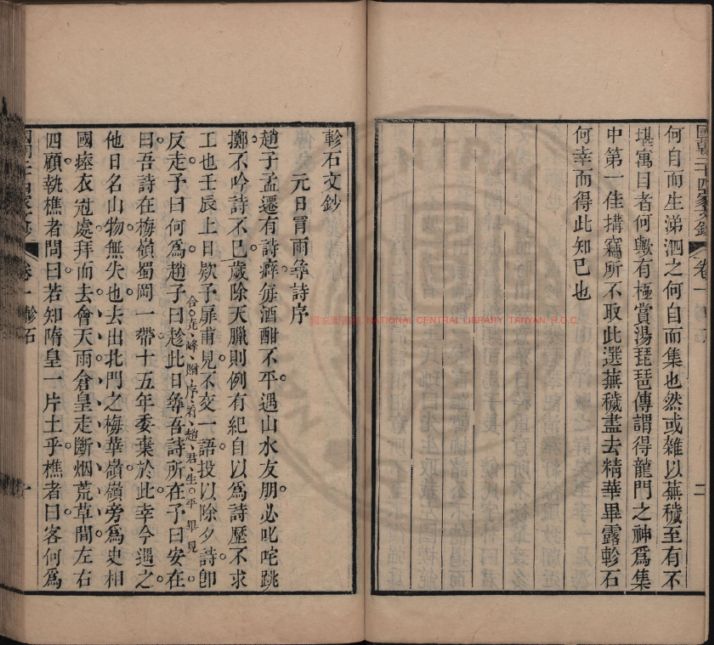 何自而生涕泗之何自而集也然或雜以蕪穢至有不
堪寓目者何歟有極賞湯琵琶傳謂得龍門之神爲集
中第一佳搆竊所不取此選蕪穢盡去精華畢露軫石
何幸而得此知已也
軫石文鈔
元日冒雨尋詩序
趙子孟遷有詩癖每酒酣不平遇山水友朋必叱咤跳
擲不吟詩不已歲除天臘則例有紀自以爲詩歷不求
工也壬辰上日欵予扉甫見不交一語投以除夕詩卽
合堯峰贈序看趙君生平畢見
反走予曰何爲趙子曰趁此日尋吾詩所在予曰安在
曰吾詩在梅嶺蜀岡一帶十五年委棄於此幸今遇之
他日名山物無失也去出北門之梅華嶺嶺旁爲史相
國瘞衣冠處拜而去會天雨倉皇走斷烟荒草間左右
四顧執樵者問曰若知隋皇一片土乎樵者曰客何爲
卷一 軫石 一
NATIONAL CENTRAL LIBRARY, TAIWAN, R.O.C.